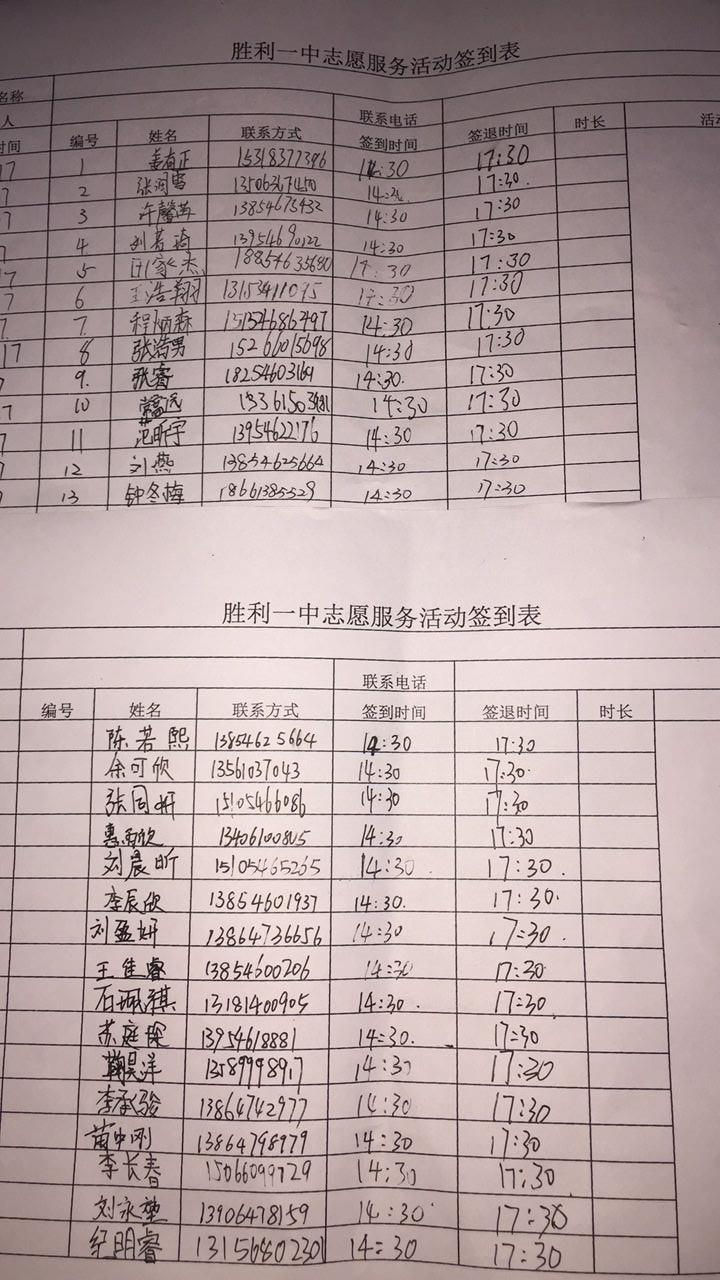 胜利一中志愿服务活动签到表
名称
人 联系电话
时间 编号 姓名 联系方式 签到时间 签退时间 时长 活动
17 1 15318377396 14:30 17:30
7 2 13506367450 17:30.
7 3 许馨 13854675432 14:30 17:30
7 4 刘若琦 13954690122 14:30 17:30
17 5 18854635680 17:30
7 6 王浩翔 17:30
7. 7. 程炳森 14:30 17:30
17 8 张浩男 15266015698 14:30 17:30
7 9. 张睿 18254603169 14:30. 17:30
7 10 远 14:30 17:30
7 11 范昕宇 13954622176 14:30 17:30
7 12 刘燕 13854625664 14:30 17:30
13 钟冬梅 18661385529 14:30 17:30
胜利一中志愿服务活动签到表
联系电话
编号 姓名 联系方式 签到时间 签退时间 时长
陈若熙 13854625664 14:30 17:30
余可欣 13561037043 14:30 17:30.
张同妍 15105466086 14:30 17:30
惠雨欣 13406100805 14:30 17:30
刘晨昕 15105465265 14:30. 17:30.
李辰欣 13864601937 14:30. 17:30.
刘盈妍 13864736656 14:30 17:30.
王佳睿 13854600206 14:30 17:30
石珮祺 13181400905 14:30. 17:30
苏庭琛 13954618881 14:30. 17:30
洋 13589998917 14:30 17:30
李承骏 13864742977 14:30 17:30
苗中刚 13864798979 14:30 17:30
李长春 15066099729 14:30 17:30
刘永堃 13906478159 14:30. 17:30
纪明睿 13156802301 14:30 17:30